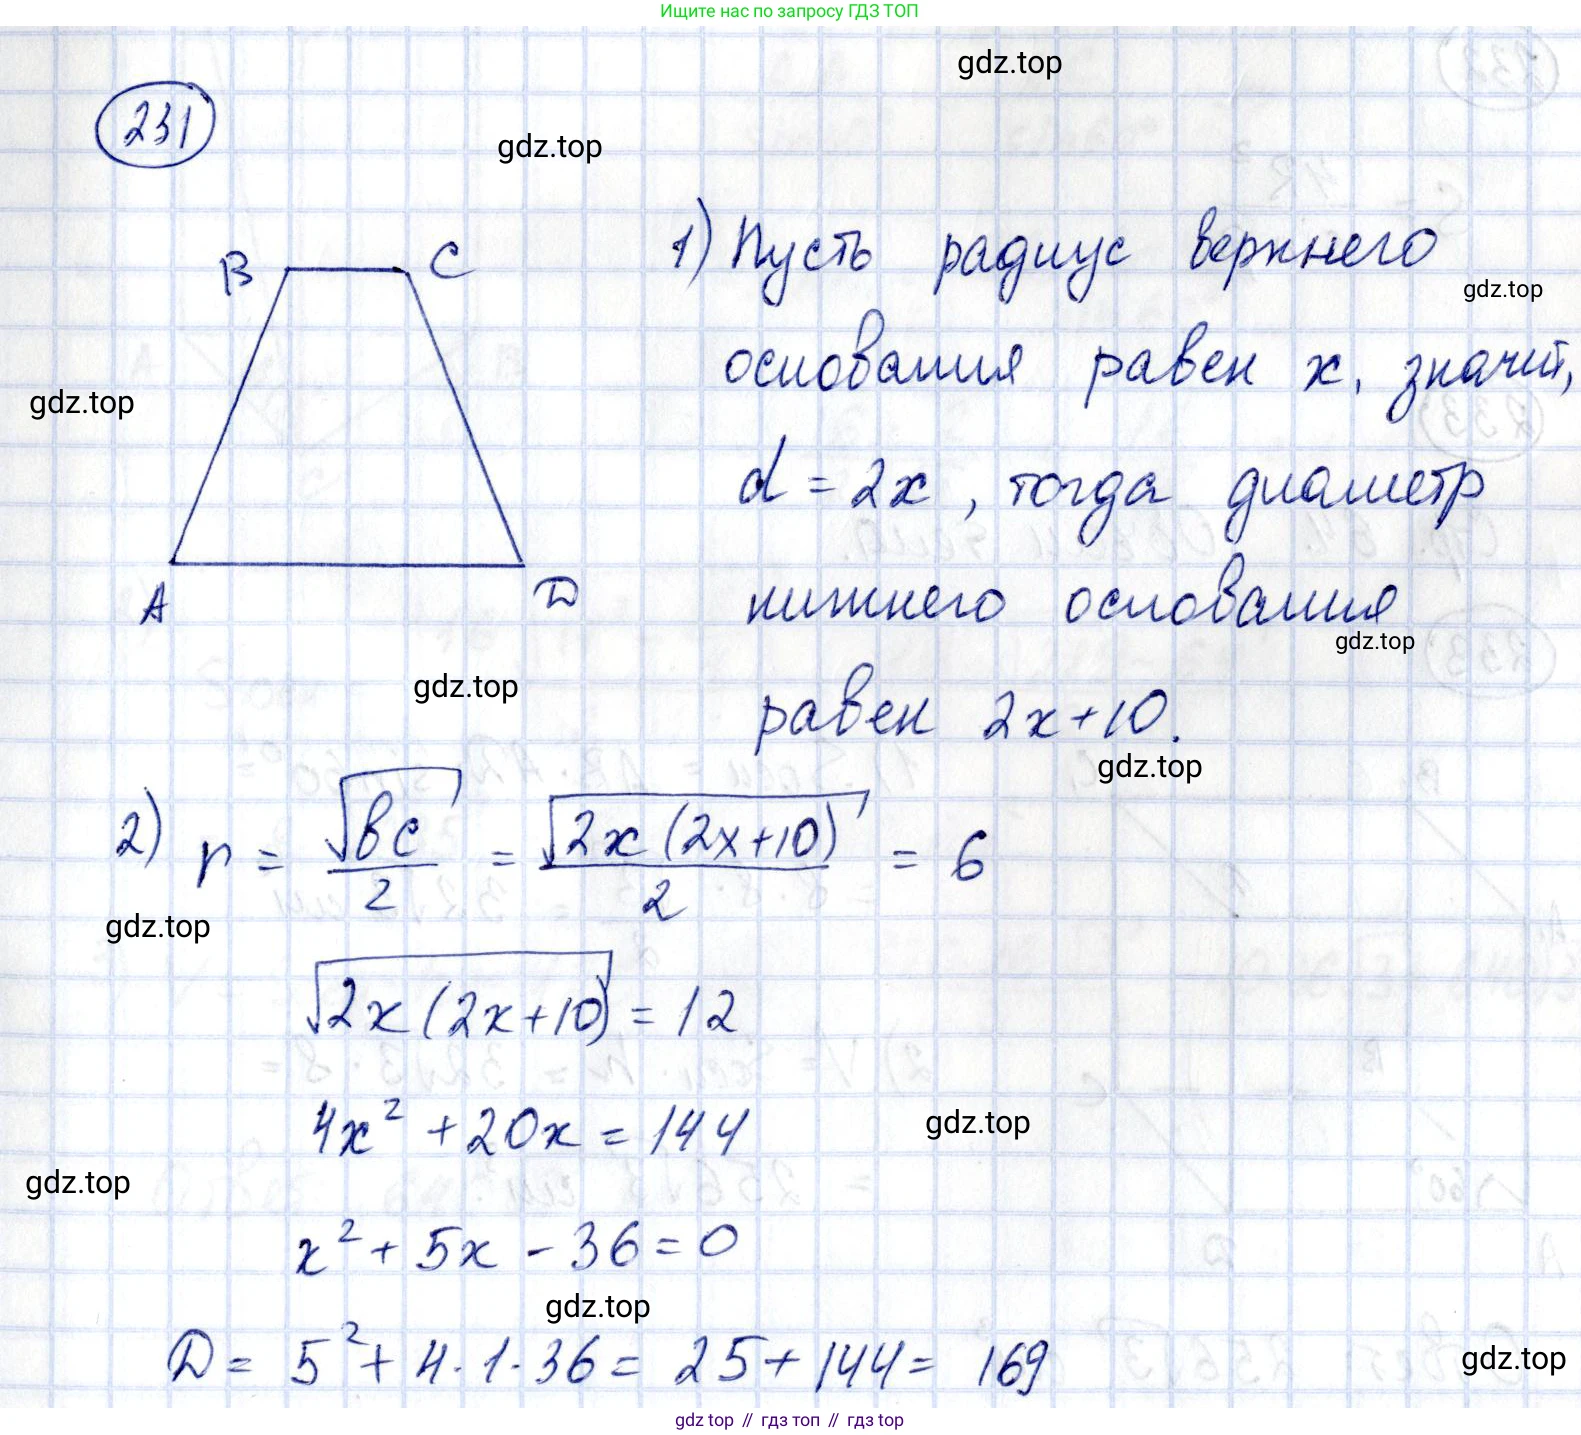 Ищите нас по запросу ГДЗ ТОП
gdz.top
231
gdz.top
B C
1) Пусть радиус верхнего
gdz.top
основания равен x, значит,
gdz.top
d = 2x, тогда диаметр
A D
нижнего основания
gdz.top
gdz.top
равен 2x+10.
gdz.top
2) r = √bc / 2 = √2x(2x+10) / 2 = 6
gdz.top
√2x(2x+10) = 12
4x² + 20x = 144
gdz.top
gdz.top
x² + 5x - 36 = 0
gdz.top
D = 5² + 4·1·36 = 25 + 144 = 169
gdz.top
gdz.top // гдз топ // гдз top